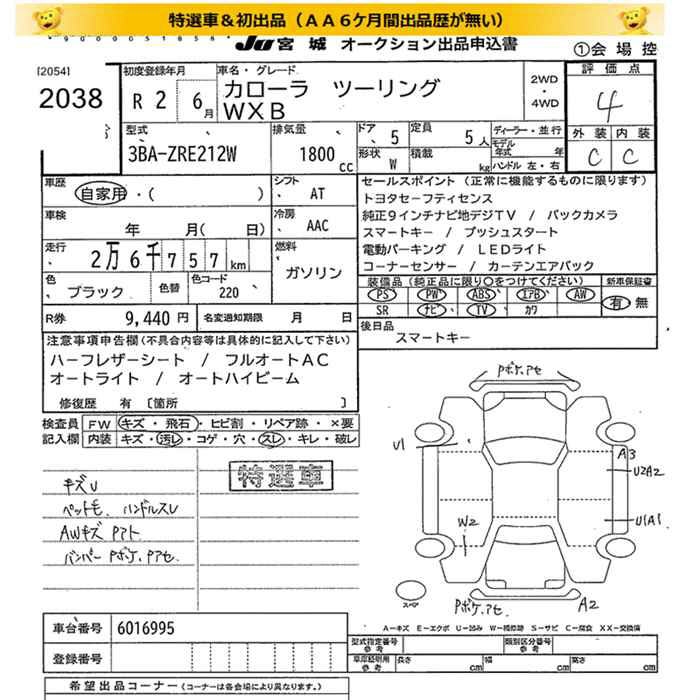 特選車＆初出品（ＡＡ６ケ月間出品歴が無い）
JU 宮 城 オークション出品申込書
①会 場 控
[2054]
2038
初度登録年月
R 2 6月
車名・グレード
カローラ ツーリング
ＷＸＢ
2WD
・
4WD
評 価 点
4
外 装 内 装
C C
型式
3BA-ZRE212W
排気量
1800 cc
ドア 5
定員 5人
ディーラー・並 行
モデル年式 年
形状 W
積載 kg
ハンドル 左・右
車歴
自家用・( )
シフト
AT
車検
年 月( 日)
冷房
AAC
走行
2万6千757km
燃料
ガソリン
色
ブラック
色替
色コード
220
R券 9,440円
名変通知期限 月 日
セールスポイント（正常に機能するものに限ります）
トヨタセーフティセンス
純正９インチナビ地デジＴＶ / バックカメラ
スマートキー / プッシュスタート
電動パーキング / ＬＥＤライト
コーナーセンサー / カーテンエアバック
装備品（純正品に限り○をつけてください）
新車保証書
PS PW ABS エアB AW
SR ナビ TV カワ
有・無
後日品
スマートキー
注意事項申告欄(不具合内容等は具体的に記入して下さい)
ハーフレザーシート / フルオートＡＣ
オートライト / オートハイビーム
修復歴 有 〔箇所 〕
検査員
記入欄
FW キズ・飛石・ヒビ割・リペア跡・×要
内装 キズ・汚レ・コゲ・穴・スレ・キレ・破レ
特選車
キズU
ペットモ. ハンドルスレ
AWキズ PアT
バンパー Pボケ. Pアセ
Pボケ.アセ
U1
A3
U2A2
U1A1
W2
スペア
Pボケ.アセ
A2
A－キズ E－エクボ U－凹み W－補修跡 S－サビ C－腐食 XX－交換済
車台番号 6016995
登録番号
型式指定番号
参考
類別区分番号
参考
車庫証明用
参考
長さ cm 幅 cm 高さ cm
希望出品コーナー（コーナーは各会場により異なります。）